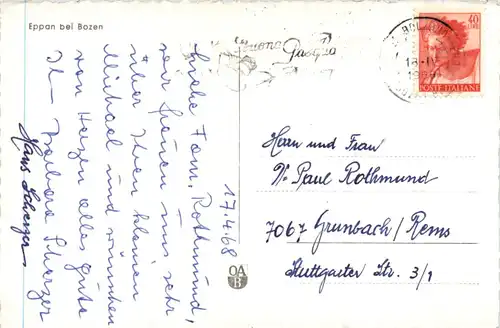 Eppan bei Bozen
Buona
Pasqua
40
LIRE
POSTE ITALIANE
17.4.68
Liebe Fam. Rothmund,
wir freuen uns sehr
über Ihren kleinen
Michael und wünschen
von Herzen alles Gute
Ihre Barbara Scherzer
Hans Scherzer
Herrn und Frau
Dr. Paul Rothmund
7067 Grunbach/Rems
Stuttgarter Str. 3/1
OA
B